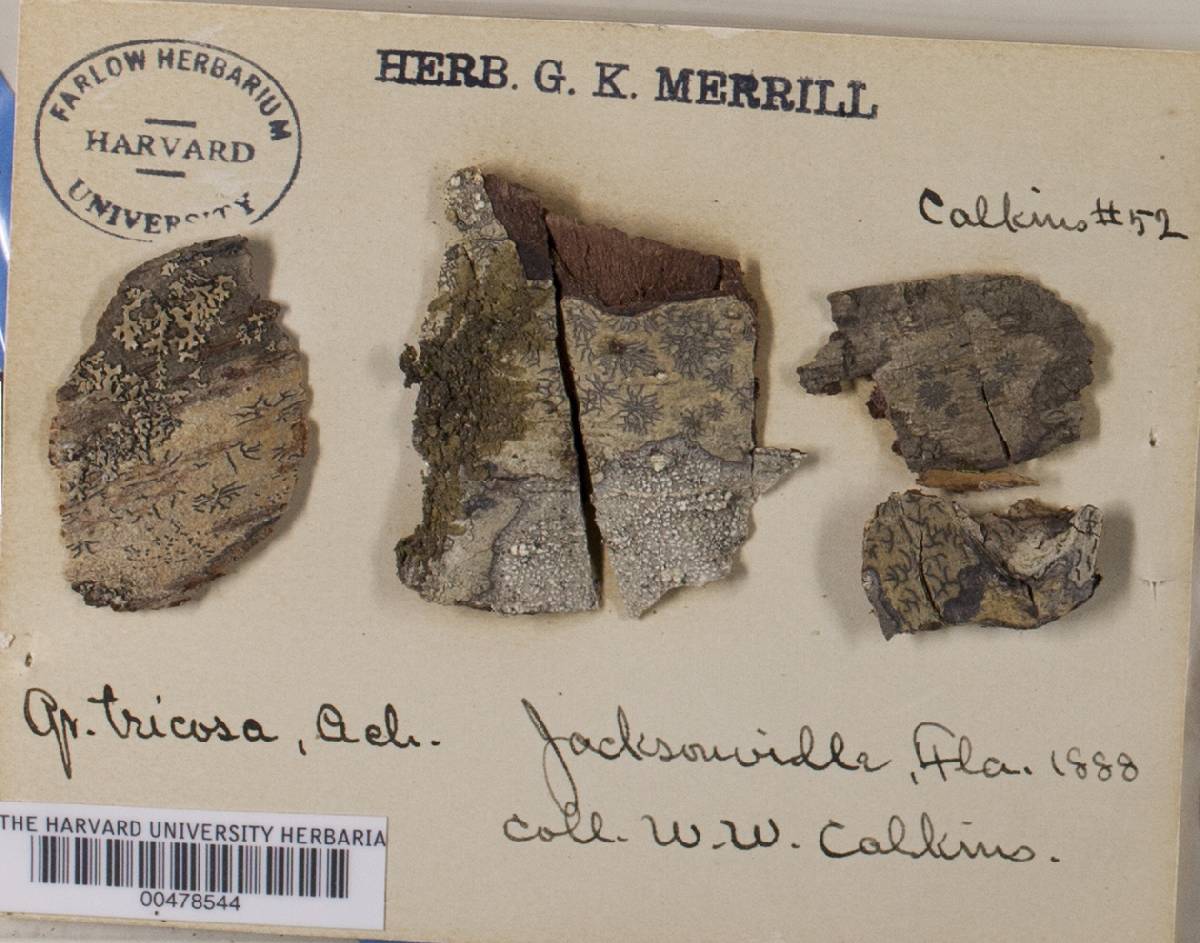 FARLOW HERBARIUM
HARVARD
UNIVERSITY
HERB. G. K. MERRILL
Calkins #52
Gr. tricosa, Ach.
Jacksonville, Fla. 1888
coll. W. W. Calkins.
THE HARVARD UNIVERSITY HERBARIA
00478544